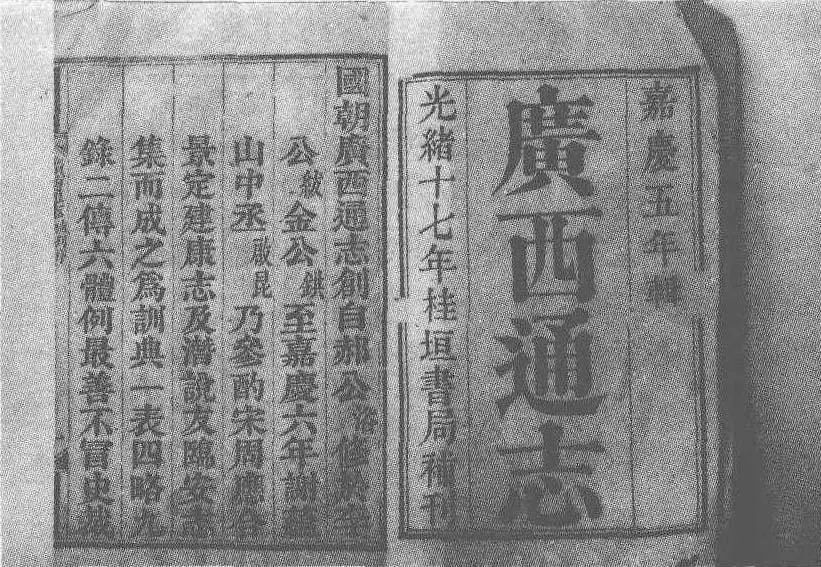 嘉慶五年輯
廣西通志
光緒十七年桂垣書局補刊
國朝廣西通志創自郝公浴修於李
公紱金公鉷至嘉慶六年謝蘊
山中丞啟昆乃參酌宋周應合
景定建康志及潛說友臨安志
集而成之為訓典一表四略九
錄二傳六體例最善不冒史裁